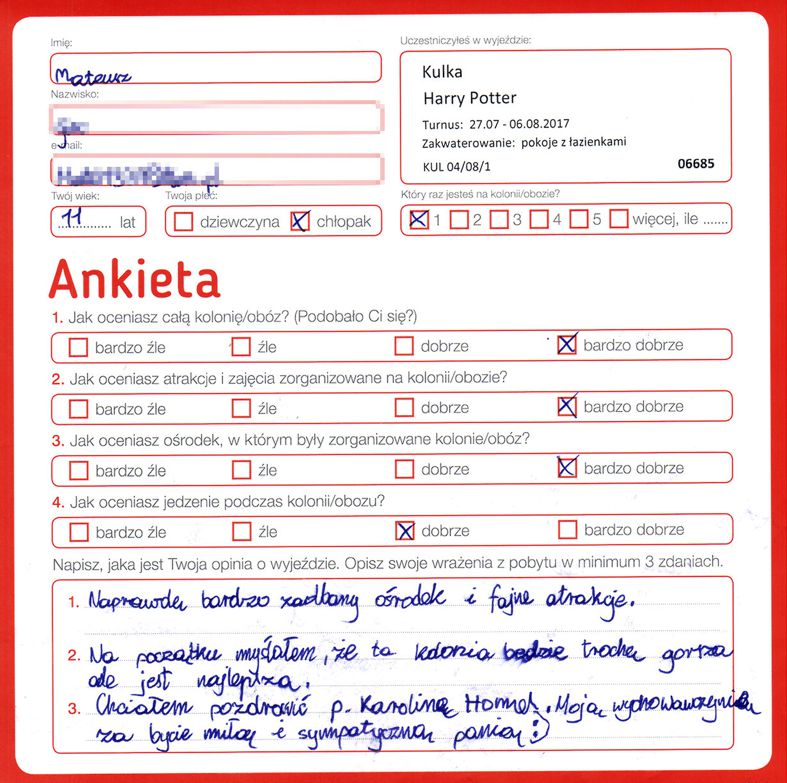 Imię:
Mateusz
Nazwisko:
e-mail:
Twój wiek:
11 lat
Twoja płeć:
dziewczyna chłopak
Uczestniczyłeś w wyjeździe:
Kulka
Harry Potter
Turnus: 27.07 - 06.08.2017
Zakwaterowanie: pokoje z łazienkami
KUL 04/08/1 06685
Który raz jesteś na kolonii/obozie?
1 2 3 4 5 więcej, ile .......
Ankieta
1. Jak oceniasz całą kolonię/obóz? (Podobało Ci się?)
bardzo źle źle dobrze bardzo dobrze
2. Jak oceniasz atrakcje i zajęcia zorganizowane na kolonii/obozie?
bardzo źle źle dobrze bardzo dobrze
3. Jak oceniasz ośrodek, w którym były zorganizowane kolonie/obóz?
bardzo źle źle dobrze bardzo dobrze
4. Jak oceniasz jedzenie podczas kolonii/obozu?
bardzo źle źle dobrze bardzo dobrze
Napisz, jaka jest Twoja opinia o wyjeździe. Opisz swoje wrażenia z pobytu w minimum 3 zdaniach.
1. Naprawdę bardzo zadbany ośrodek i fajne atrakcje.
2. Na początku myślałem, że ta kolonia będzie trochę gorsza
ale jest najlepsza.
3. Chciałem pozdrowić p. Karolinę. Moją wychowawczynię
za bycie miłą i sympatyczną panią :)